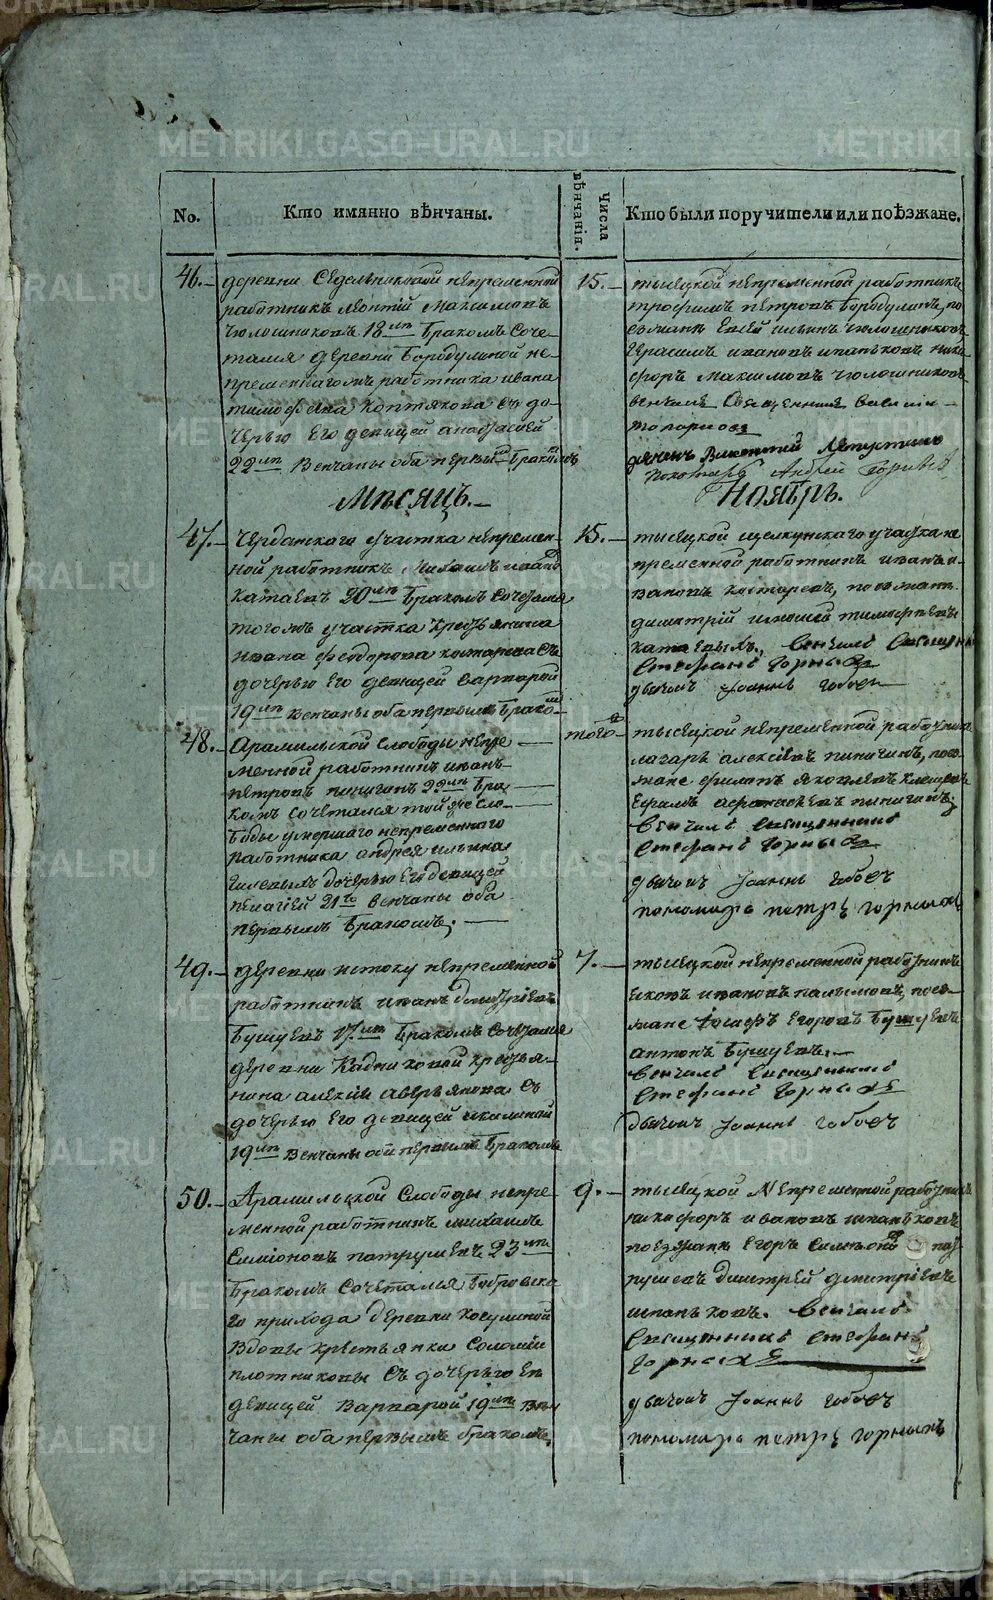 No.
Кто имянно вѣнчаны.
Числа
вѣнчанія.
Кто были поручители или поѣзжане.
46.
деревни Седельниковой непременной
работникъ Леонтій Максимовъ
Чюлошниковъ 18ти бракомъ соче-
тался деревни Бородулиной не-
пременнагожъ работника Ивана
Тимофѣева Коптякова съ до-
черью его девицей Анастасіей
22ти венчаны оба первымъ бракомъ
15.
тысяцкой непременной работникъ
Трофимъ Петровъ Бородулинъ, по
езжана Евсей Ильинъ Чюлошниковъ
Герасимъ Ивановъ Шпаньковъ Ники
форъ Максимовъ Чюлошниковъ
венчалъ Священникъ Василій
Топорковъ
дьяконъ Викентий Ляпустинъ
Пономарь Андрей
Мѣсяцъ.
Ноябрь.
47.
Черданскаго участка непремен-
ной работникъ Михаилъ Иванов
Катаевъ 20ти бракомъ сочетался
тогожъ участка крестьянина
Ивана Феодорова Костарева съ
дочерью его девицей Варварой
19ти венчаны оба первымъ бракомъ
15.
тысяцкой Щелкунскаго участка не
пременной работникъ Иванъ И-
вановъ Костаревъ, поезжана
Димитрій Тимофѣевъ
Катаевыхъ, венчалъ Священникъ
Стефанъ Горныхъ
дьячокъ Іоаннъ
48.
Арамильской слободы непре
менной работникъ Иванъ
Петровъ Пиничинъ 22ти бра-
комъ сочетался той же сло-
боды умершаго непременнаго
работника Андрея Ильина
дочерью его девицей
Пелагіей 21го венчаны оба
первымъ бракомъ.
того
тысяцкой непременной работникъ
Лазарь Алексѣевъ Пиничинъ, поез-
жане Филипъ Яковлевъ
Ефимъ
венчалъ Священникъ
Стефанъ Горныхъ
дьячокъ Іоаннъ
пономарь Петръ Горныхъ
49.
деревни Истоку непременной
работникъ Иванъ Дмитріевъ
Бушуевъ 17ти бракомъ сочетался
деревни Кадниковой крестья-
нина Алексѣя Аверьянова съ
дочерью его девицей Акилиной
19ти венчаны оба первымъ бракомъ
7.
тысяцкой непременной работникъ
Ивановъ поез-
жане Іосифъ Егоровъ Бушуевъ
Антонъ Бушуевъ.
венчалъ Священникъ
Стефанъ Горныхъ
дьячокъ Іоаннъ
50.
Арамильской слободы непре-
менной работникъ Михаилъ
Симіоновъ Патрушевъ 23ти
бракомъ сочетался Бобровска
го прихода деревни Косулиной
вдовы крестьянки Соломіи
Плотниковы съ дочерью ея
девицей Варварой 19ти вен
чаны оба первымъ бракомъ
9.
тысяцкой Непременной работникъ
Никифоръ Ивановъ Шпаньковъ
поезжана Егоръ Симеонов Пат
рушевъ Дмитрей Дмитріевъ
Шпаньковъ. Венчалъ
Священникъ Стефанъ
Горныхъ
дьячокъ Іоаннъ
пономарь Петръ Горныхъ
METRIKI.GASO-URAL.RU